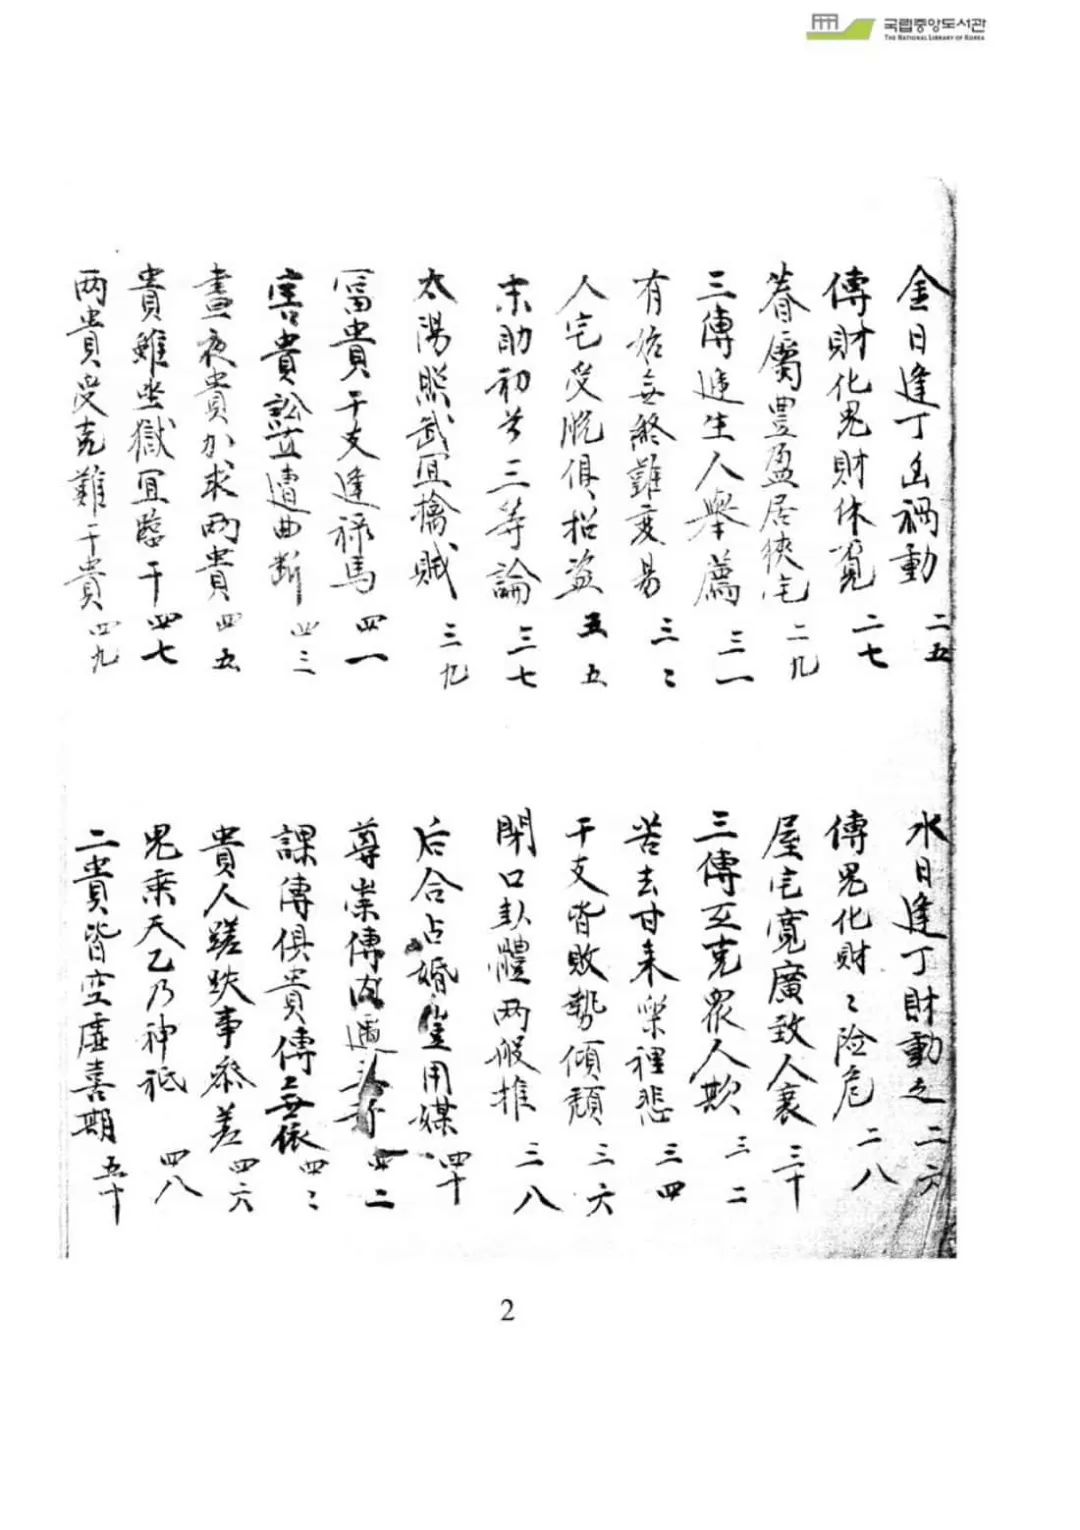 국립중앙도서관
THE NATIONAL LIBRARY OF KOREA
金日逢丁凶禍動 二五
傳財化鬼財休覓 二七
眷屬豊盈居狹宅 二九
三傳遞生人舉薦 三一
有始無終難変易 三〻
人宅受脱俱招盜 五五
末助初兮三等論 三七
太陽照武宜擒賊 三九
富貴干支逢祿馬 四一
害貴訟直遭曲斷 四三
晝夜貴加求兩貴 四五
貴雖坐獄宜臨干 四七
两貴受克難干貴 四九
水日逢丁財動之 二六
傳鬼化財〻险危 二八
屋宅寬廣致人衰 三十
三傳互克衆人欺 三二
苦去甘来樂裡悲 三四
干支皆敗勢傾頹 三六
閉口卦體两般推 三八
后合占婚豈用媒 四十
尊崇傳内遁 二
課傳俱貴傳無依 四〻
貴人蹉跌事參差 四六
鬼乘天乙乃神祇 四八
二貴皆空虛喜期 五十
2